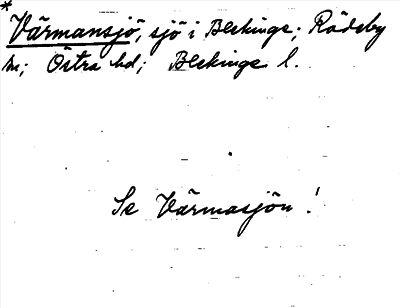 *
Värmansjö, sjö i Blekinge; Rödeby
sn; Östra hd; Blekinge l.
Se Värmasjön!